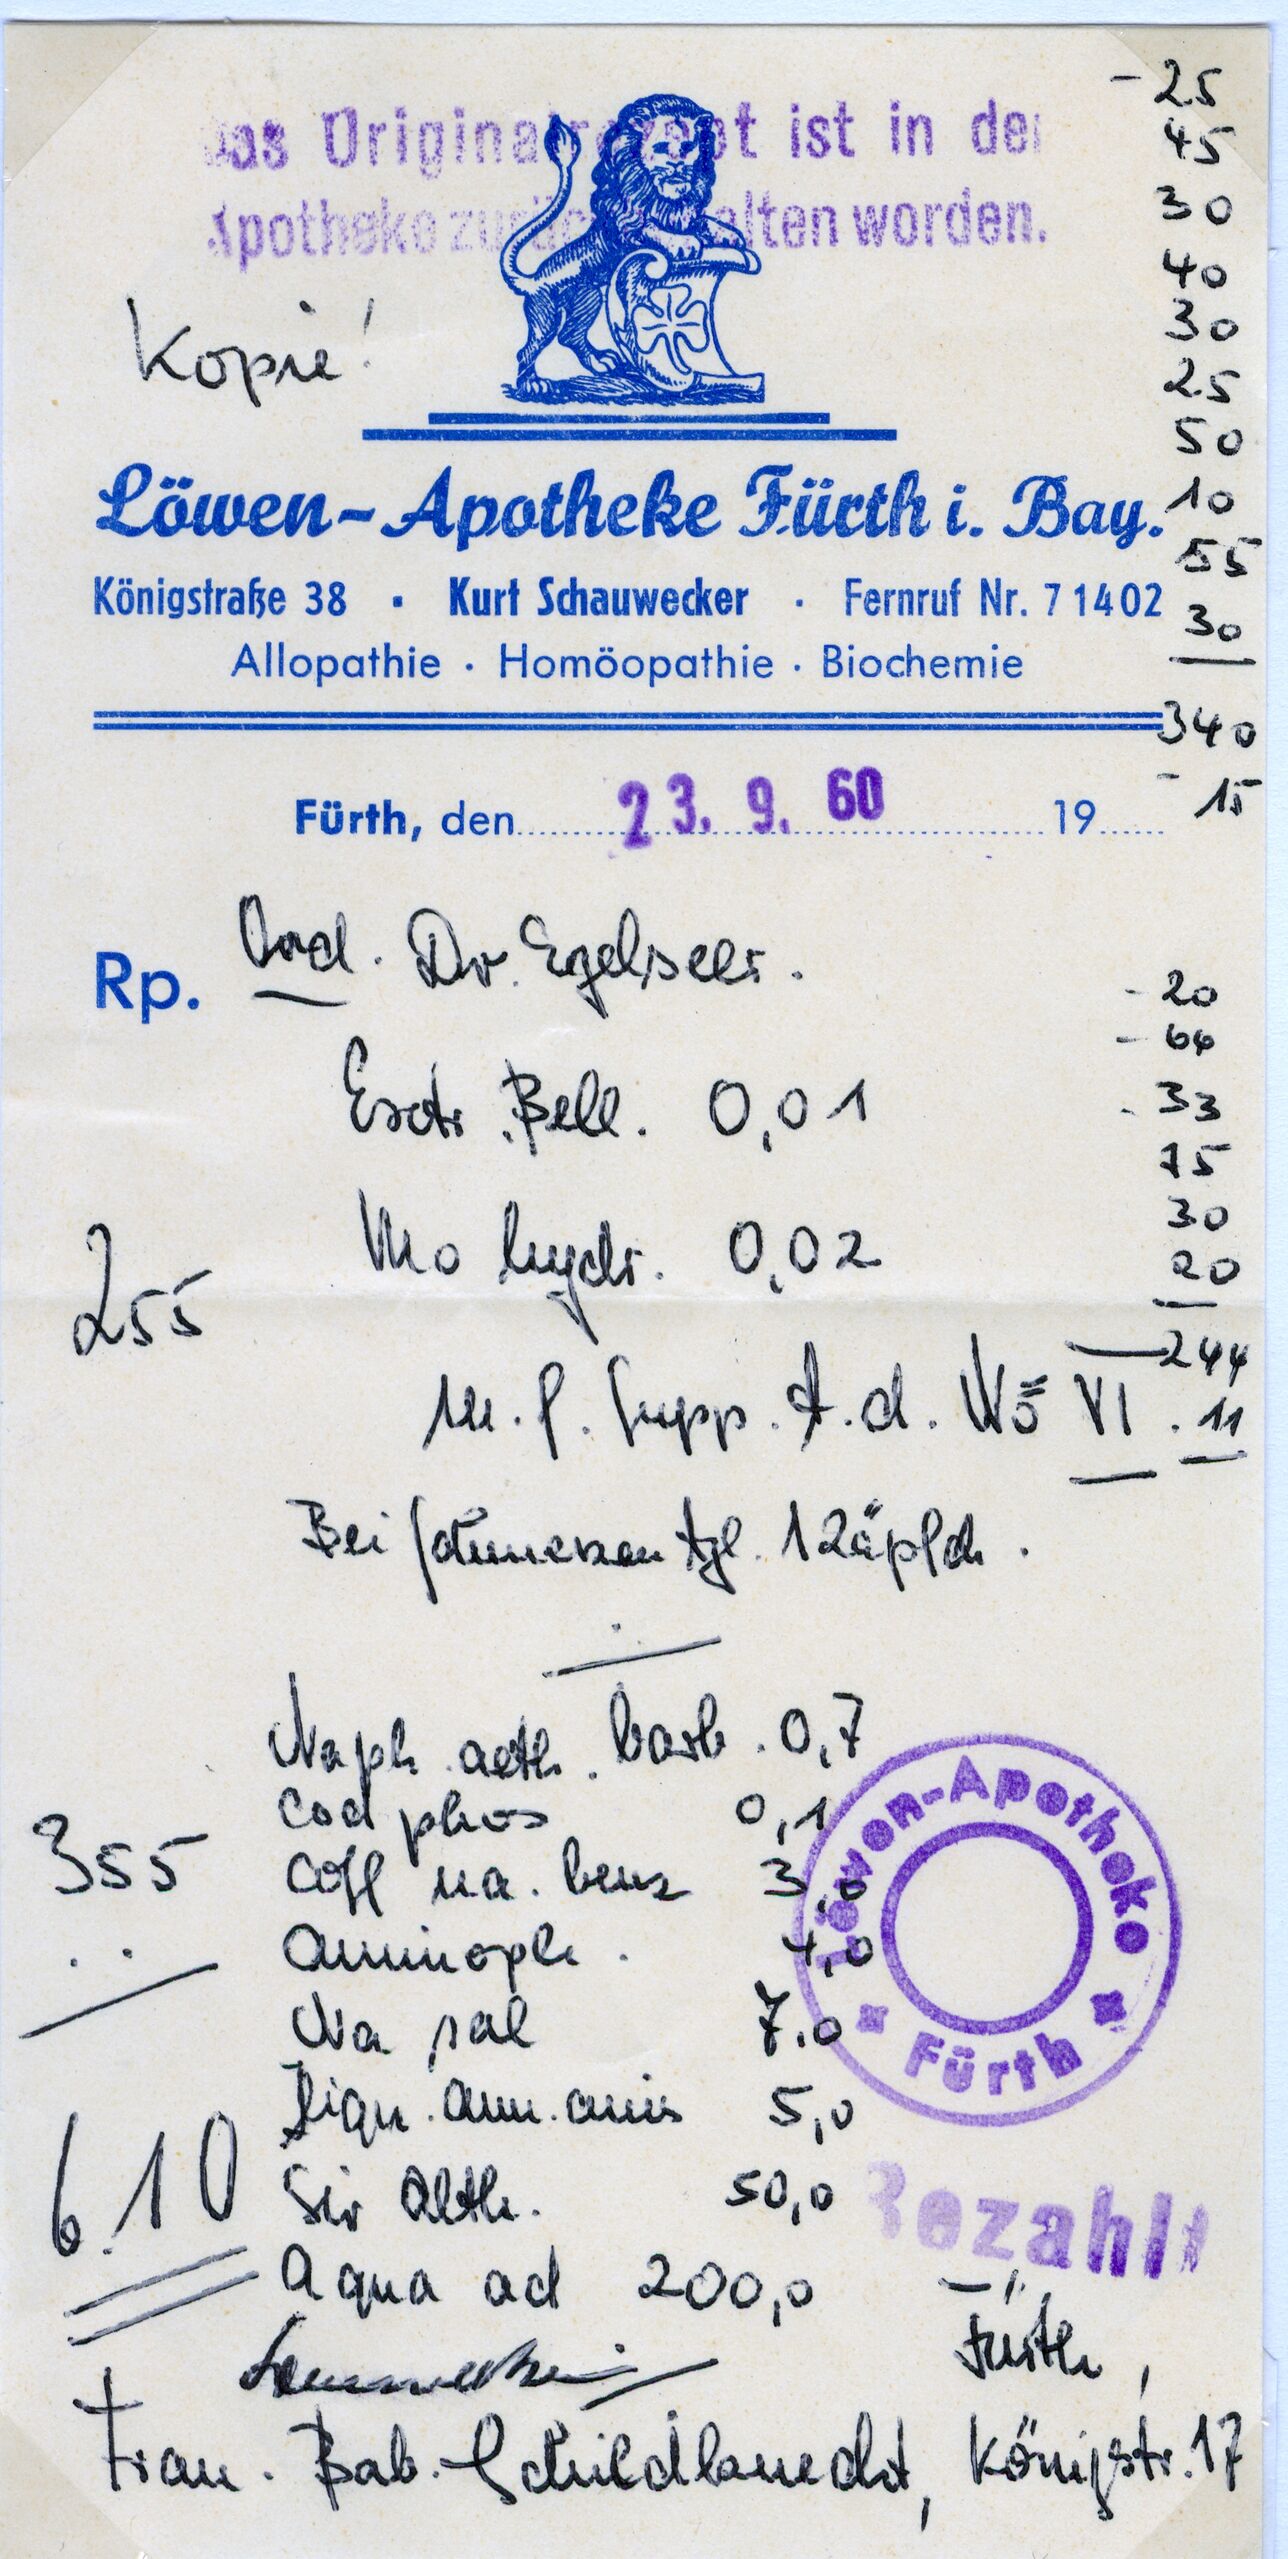 - 25
45
30
40
30
25
50
10
55
30
340
- 15
Das Originalrezept ist in der
Apotheke zurückbehalten worden.
Kopie!
Löwen-Apotheke Fürth i. Bay.
Königstraße 38 · Kurt Schauwecker · Fernruf Nr. 71402
Allopathie · Homöopathie · Biochemie
Fürth, den 23. 9. 60 19
Rp. Ord. Dr. Egelseer.
- 20
- 66
- 33
75
30
20
244
11
Extr. Bell. 0,01
Mo hydr. 0,02
255
M. f. Supp. t. d. No VI.
Bei Schmerzen tgl. 1 Zäpfch.
Naph. aeth. barb. 0,7
Cod phos 0,1
Coff na. benz 3,0
355
Aminoph. 4,0
Na sal 7.0
Liqu. Amm. anis 5,0
Sir Alth. 50,0
6.10
Aqua ad 200,0
Löwen-Apotheke
Fürth
Bezahlt
Schauwecker
Fürth,
Frau. Bab. Schildknecht, Königstr. 17